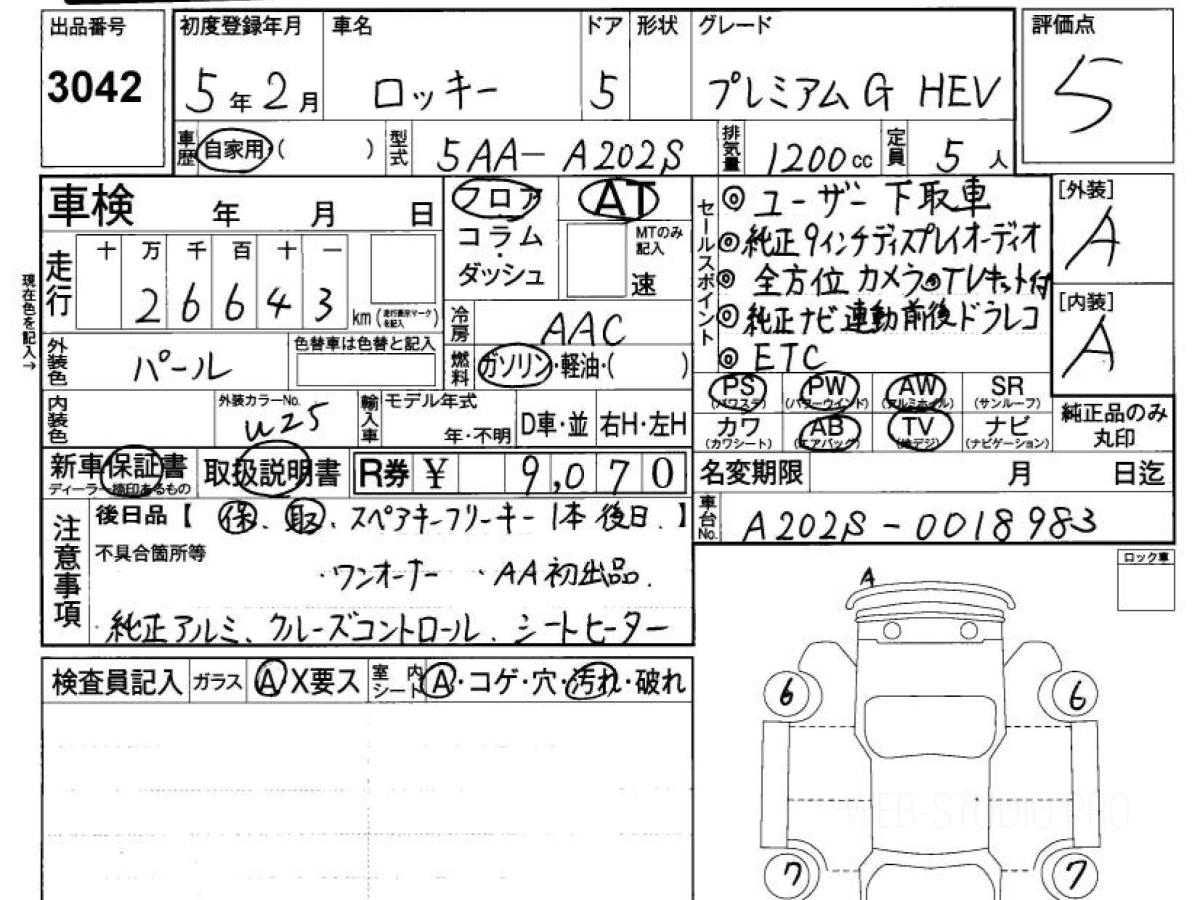 出品番号
3042
初度登録年月
5年2月
車名
ロッキー
ドア
5
形状
グレード
プレミアムG HEV
評価点
5
車歴
自家用・( )
型式
5AA-A202S
排気量
1200cc
定員
5人
車検 年 月 日
フロア
コラム
・
ダッシュ
AT
MTのみ記入
速
セールスポイント
◎ユーザー下取車
◎純正9インチディスプレイオーディオ
◎全方位カメラ◎TVキット付
◎純正ナビ連動前後ドラレコ
◎ETC
[外装]
A
[内装]
A
走行
十 万 千 百 十 一
2 6 6 4 3
km(走行表示マークを記入)
現在色を記入→
冷房
AAC
外装色
パール
色替車は色替と記入
燃料
ガソリン・軽油・( )
PS
(パワステ)
PW
(パワーウインド)
AW
(アルミホイル)
SR
(サンルーフ)
カワ
(カワシート)
AB
(エアバッグ)
TV
(地デジ)
ナビ
(ナビゲーション)
純正品のみ
丸印
内装色
外装カラーNo.
W25
輸入車
モデル年式
年・不明
D車・並
右H・左H
新車保証書
ディーラー捺印あるもの
取扱説明書
R券 ¥ 9,070
名変期限 月 日迄
車台No.
A202S-0018983
注意事項
後日品【 保、取、スペアキーフリーキー1本 後日.】
不具合箇所等
・ワンオーナー ・AA初出品.
純正アルミ、クルーズコントロール、シートヒーター
ロック車
A
検査員記入
ガラス
A X要ス
室内シート
A・コゲ・穴・汚れ・破れ
6
6
7
7
WEB-STUDIO.PRO